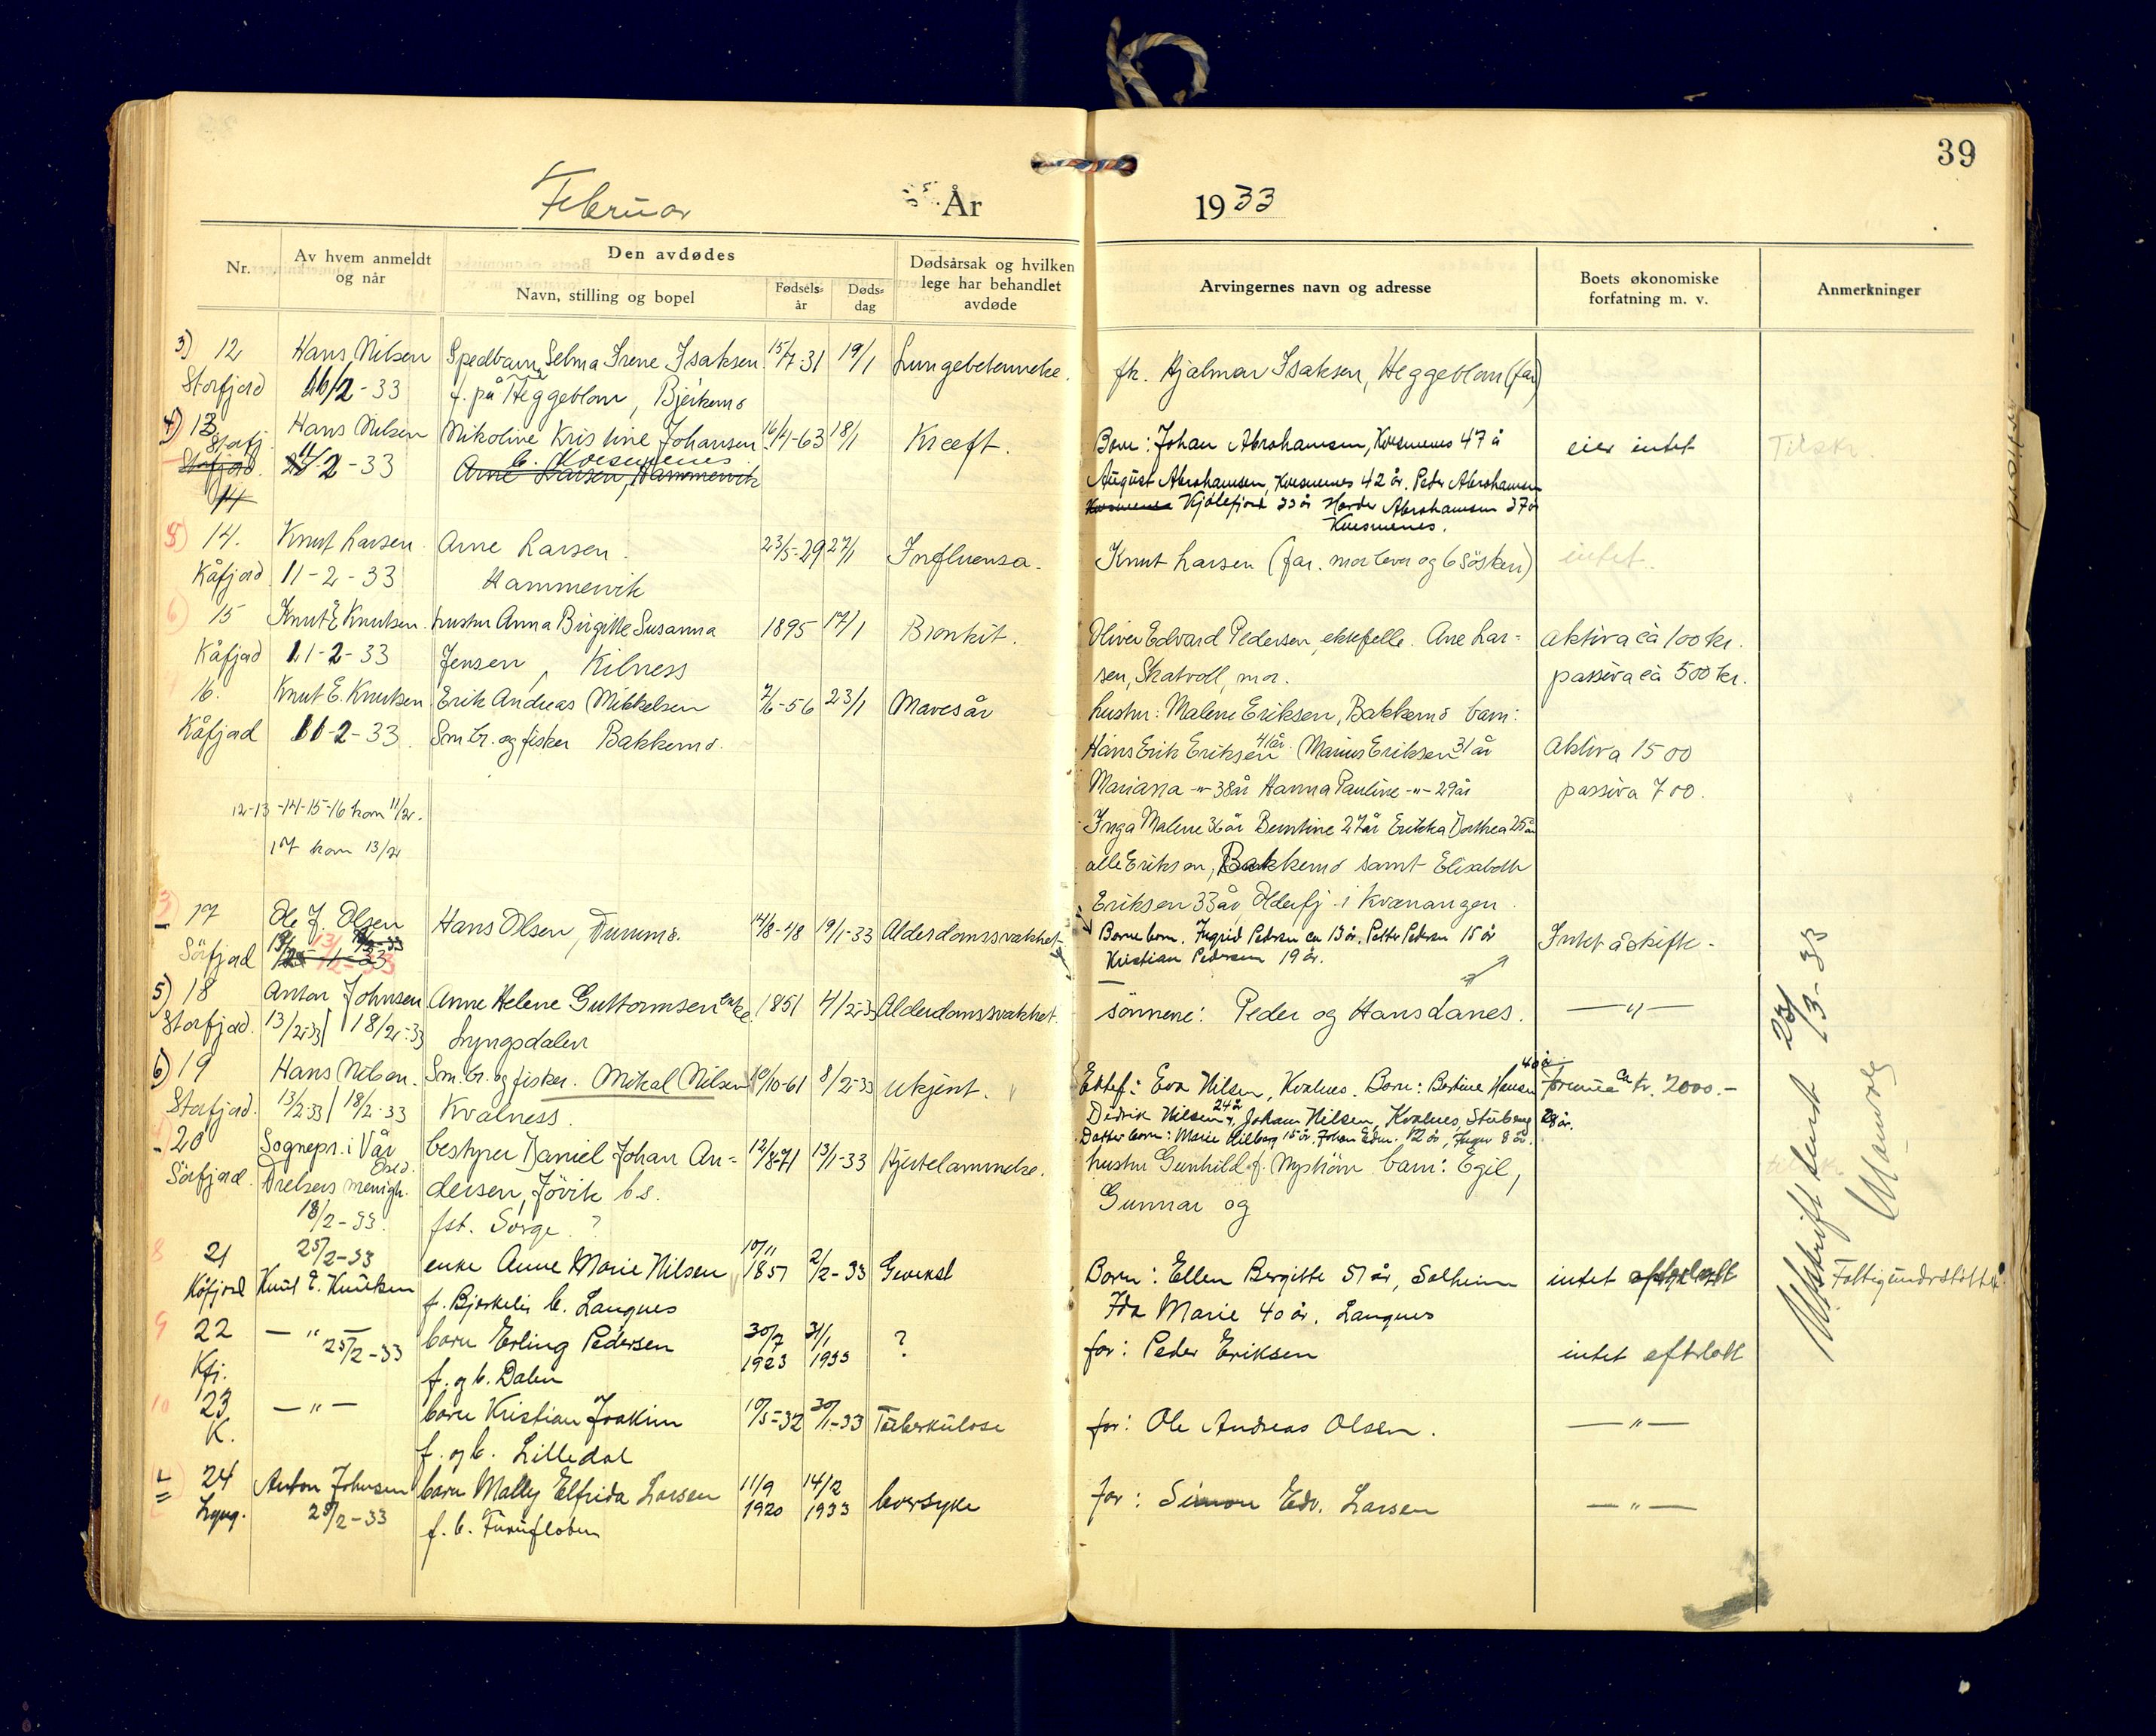 39
Februar År 1933
Nr.
Av hvem anmeldt og når
Den avdødes
Navn, stilling og bopel
Fødsels- år
Døds- dag
Dødsårsak og hvilken lege har behandlet avdøde
Arvingernes navn og adresse
Boets økonomiske forfatning m. v.
Anmerkninger
3) 12 Hans Nilsen Spedbarn Selma Irene Isaksen 15/7-31 19/1 Lungebetennelse. fh. Hjalmar Isaksen, Heggeblom (far)
Storfjord 11/2-33 f. på Heggeblom, Bjerkemo
4) 13 Hans Nilsen Nikoline Kristine Johansen 16/4-63 18/1 Kræft. Born: Johan Abrahamsen, Kvesmenes 47 å eier intet Tilskr.
Storfj. b. Kvesmenes
Storfjord. 11/2-33 Arne Larsen, Hammervik August Abrahamsen, Kvesmenes 42 år. Peder Abrahamsen
14 Kvesmenes Kjøllefjord 33 år Hardor Abrahamsen 37 år
Kvesmenes.
5) 14. Knut Larsen Arne Larsen. 23/5-29 27/1 Influensa. Knut Larsen (far. mor lever og 6 søsken) intet.
Kåfjord 11-2-33 Hammervik
6) 15 Knut E Knutsen. hustru Anna Birgitte Susanna 1895 17/1 Bronkit. Oliver Edvard Pedersen, ektefelle. Ane Lar- aktiva cà 100 kr.
Kåfjord 11-2-33 Jensen, Kilness sen, Skatvoll, mor. passiva cà 500 kr.
16. Knut E. Knutsen Erik Andreas Mikkelsen 7/6-56 23/1 Mavesår hustru: Malene Eriksen, Bakkemo barn:
Kåfjord 11-2-33. Sm.br. og fisker Bakkemo. Hans Erik Eriksen 41 år. Marius Eriksen 31 år Aktiva 1500
Mariana -"- 38 år Hanna Pauline -"- 29 år passiva 700.
12-13-14-15-16 kom 11/2. Inga Malene 36 år Berntine 27 år Erikka Dorthea 25 år
17 kom 13/2 alle Eriksen, Bakkemo samt Elisabeth
Eriksen 33 år, Olderfj. i Kvænangen.
3) 17 Ole J. Olsen Hans Olsen, 14/8-48 19/1-33 Alderdomssvakhet Barnebarn. Ingrid Pedersen ca 13 år. Petter Pedersen 15 år Intet å skifte-
Sörfjord 13/2-33 Kristian Pedersen 19 år.
5) 18 Anton Johnsen Anne Helene Guttormsen enke 1851 4/2-33 Alderdomssvakhet. sönnene: Peder og Hans danes. — " —
Storfjord. 13/2-33 / 18/2-33 Lyngsdalen
6) 19 Hans Nilsen. Sm.br. og fisker. Mikal Nilsen 10/10-61 8/2-33 ukjent. Ektef: Eva Nilsen, Kvalnes. Born: Bertine Hansen 40 år formue ca kr. 2000.-
Storfjord. 13/2-33 / 18/2-33 Kvalness. Didrik Nilsen 24 år, Johan Nilsen, Kvalnes, 28 år.
Datterborn: Marie 15 år. Johan Edm. 12 år, Inger 8 år.
20 Sognepr. i Vår bestyrer Daniel Johan An- 12/8-71 13/1-33 Hjertelammelse. hustru Gunhild f. Nyström barn: Egil,
Sörfjord. Frelsers menigh. dersen, Jövik b.s. Gunnar og
18/2-33. fst. Sorge ?
8 21 25/2-33 enke Anne Marie Nilsen 10/11 1857 2/2-33 Gevekst Born: Ellen Bergitte 51 år, Solheim intet efterlatt Fattigunderstöttet.
Kåfjord Knut E. Knutsen f. Bjerkeli b. Langnes Ida Marie 40 år, Langnes
9 22 — " — 25/2-33 barn Erling Pedersen 30/7 1923 31/1 1933 ? far: Peder Eriksen intet efterlatt
Kfj. f. og b. Dalen
10 23 — " — barn Kristian Joakim 10/5-32 30/1-33 Tuberkulose far: Ole Andreas Olsen. — " —
K. f. og b. Lilledal
24 Anton Johnsen barn Mally Elfrida Larsen 11/9 1920 14/2 1933 leversyke far: Simon Edv. Larsen — " —
Lyng. 25/2-33 f. b. Furufloten
Utskrift sendt 23/3-33